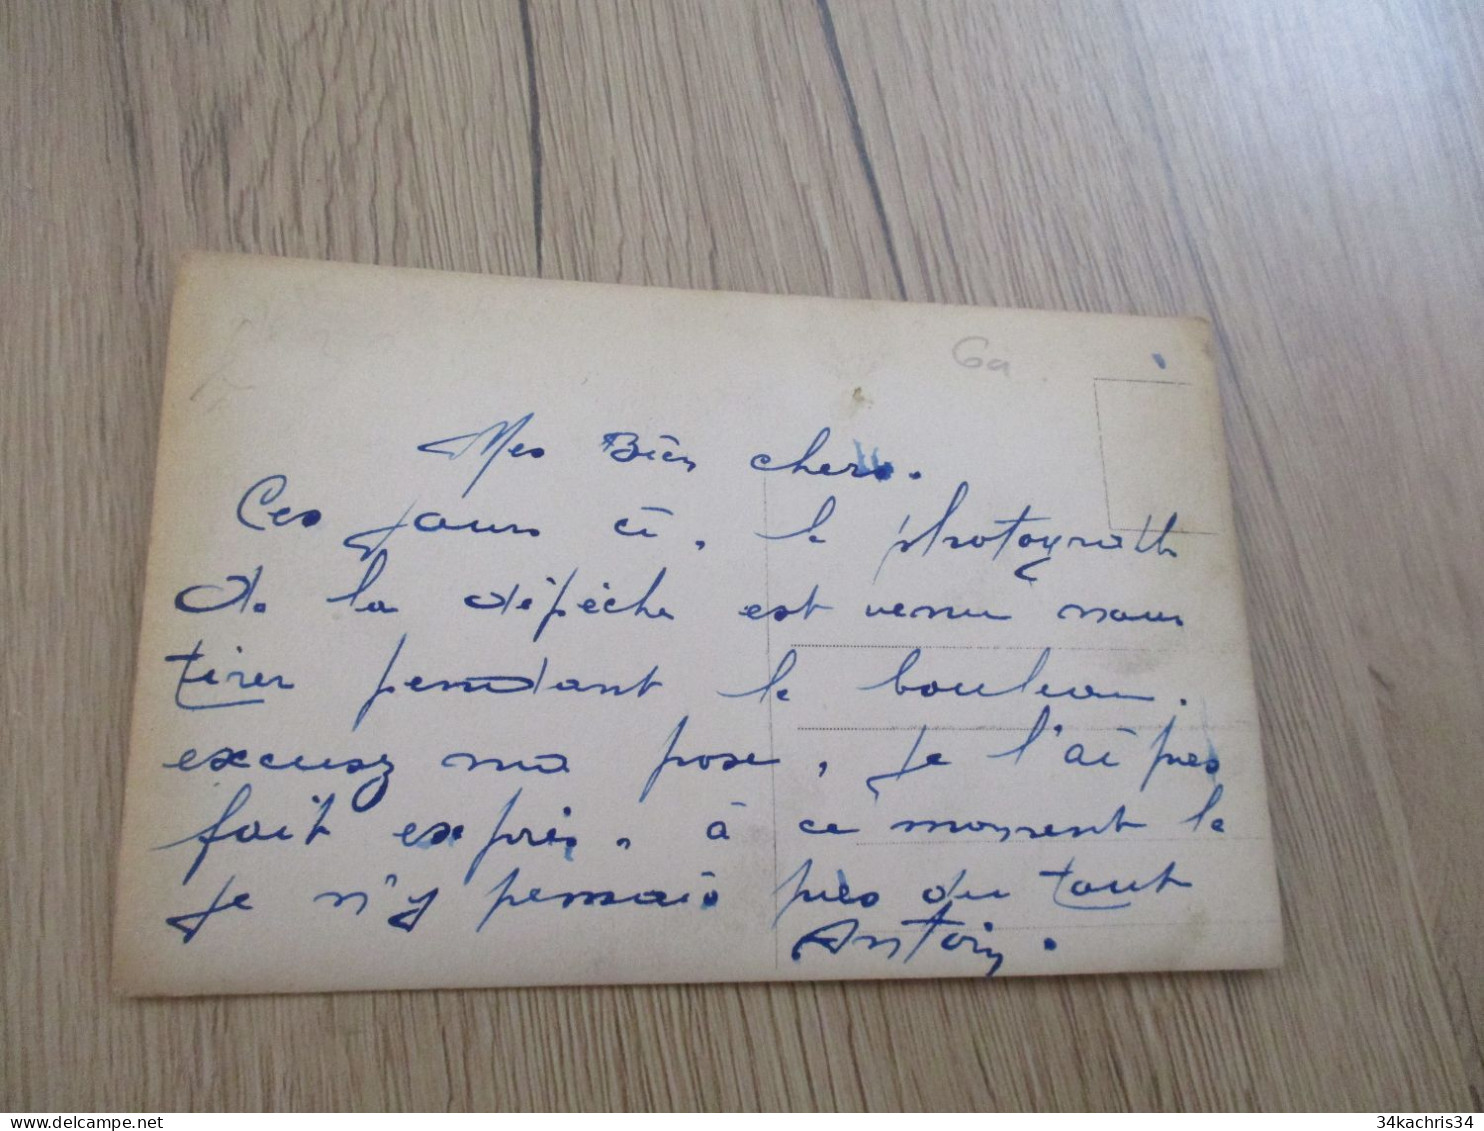 6a
Mes Bien chers.
Ces jours ci, le photograth
de la dépêche est venu nous
tirer pendant le bouleau.
excusez ma pose, je l'ai pas
fait exprès, à ce moment le
je n'y pensais pas du tout
Antoin.
34kachris34
delcampe.net